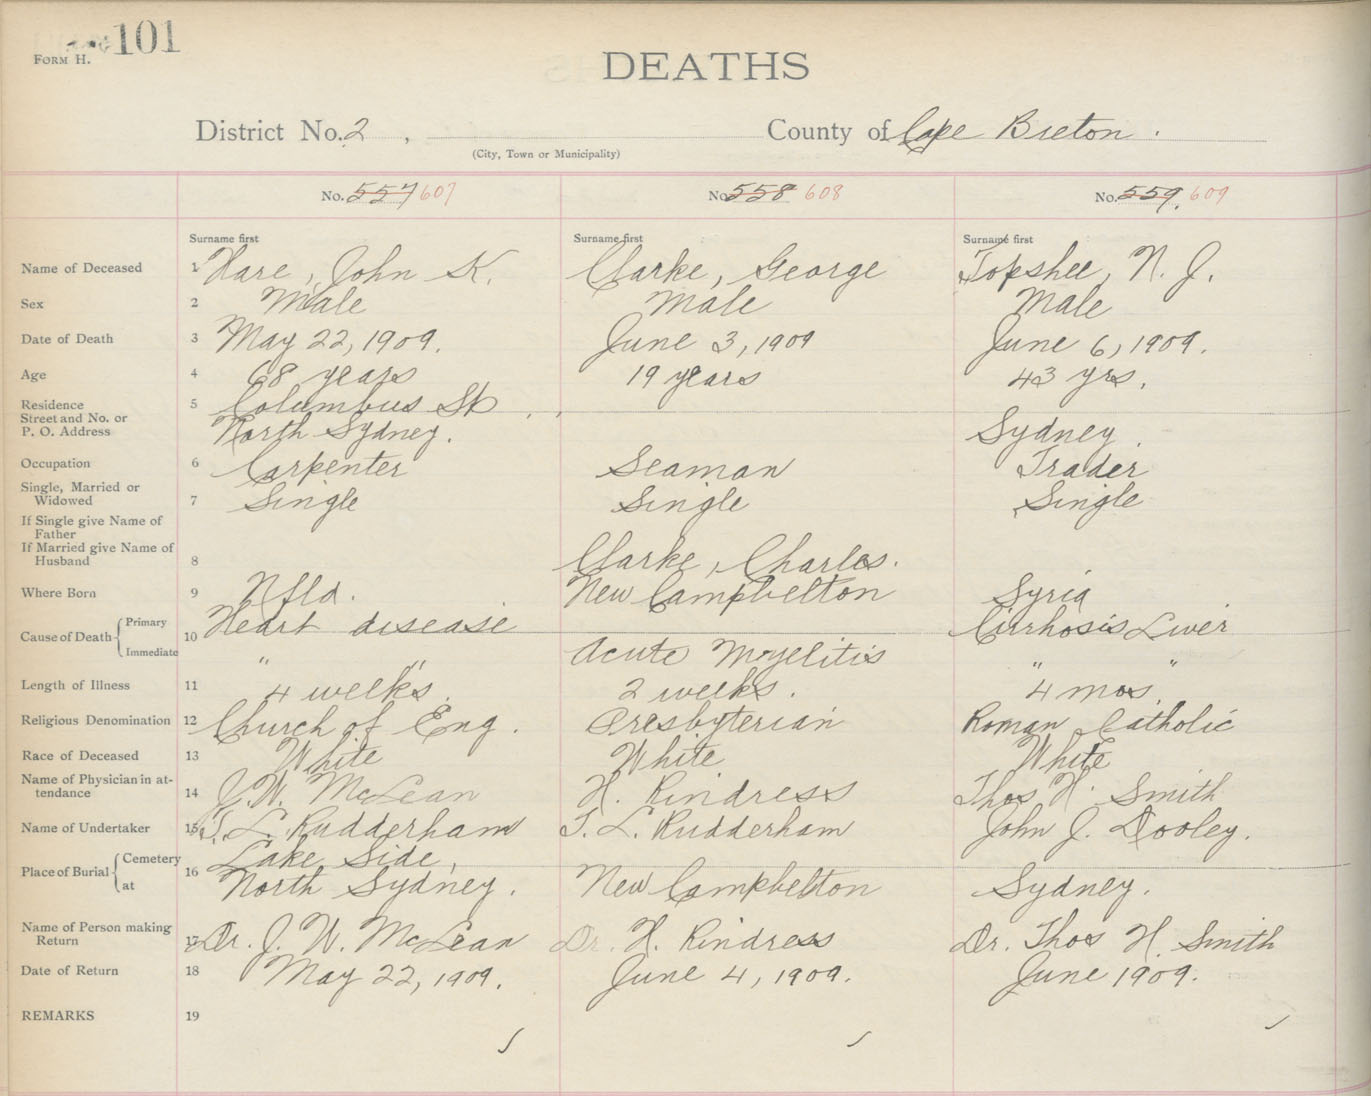 101
FORM H.
DEATHS
District No. 2 , County of Cape Breton .
(City, Town or Municipality)
No. 557 607 No. 558 608 No. 559. 609
Surname first Surname first Surname first
Name of Deceased 1 Hare, John K. Clarke, George Topshee, N. J.
Sex 2 Male Male Male
Date of Death 3 May 22, 1909. June 3, 1909 June 6, 1909.
Age 4 68 years 19 years 43 yrs.
Residence 5 Columbus St
Street and No. or
P. O. Address North Sydney. Sydney.
Occupation 6 Carpenter Seaman Trader
Single, Married or
Widowed 7 Single Single Single
If Single give Name of
Father
If Married give Name of
Husband 8 Clarke, Charles.
Where Born 9 Nfld. New Campbelton Syria
Cause of Death { Primary 10 Heart disease Cirrhosis Liver
Immediate " " Acute Myelitis " "
Length of Illness 11 4 weeks. 2 weeks. 4 mos.
Religious Denomination 12 Church of Eng. Presbyterian Roman Catholic
Race of Deceased 13 White White White
Name of Physician in at-
tendance 14 J. W. McLean H. Rindress Thos H. Smith
Name of Undertaker 15 T. L. Rudderham T. L. Rudderham John J. Dooley.
Place of Burial { Cemetery 16 Lake Side,
at North Sydney. New Campbelton Sydney.
Name of Person making
Return 17 Dr. J. W. McLean Dr. H. Rindress Dr. Thos H. Smith
Date of Return 18 May 22, 1909. June 4, 1909. June 1909.
REMARKS 19